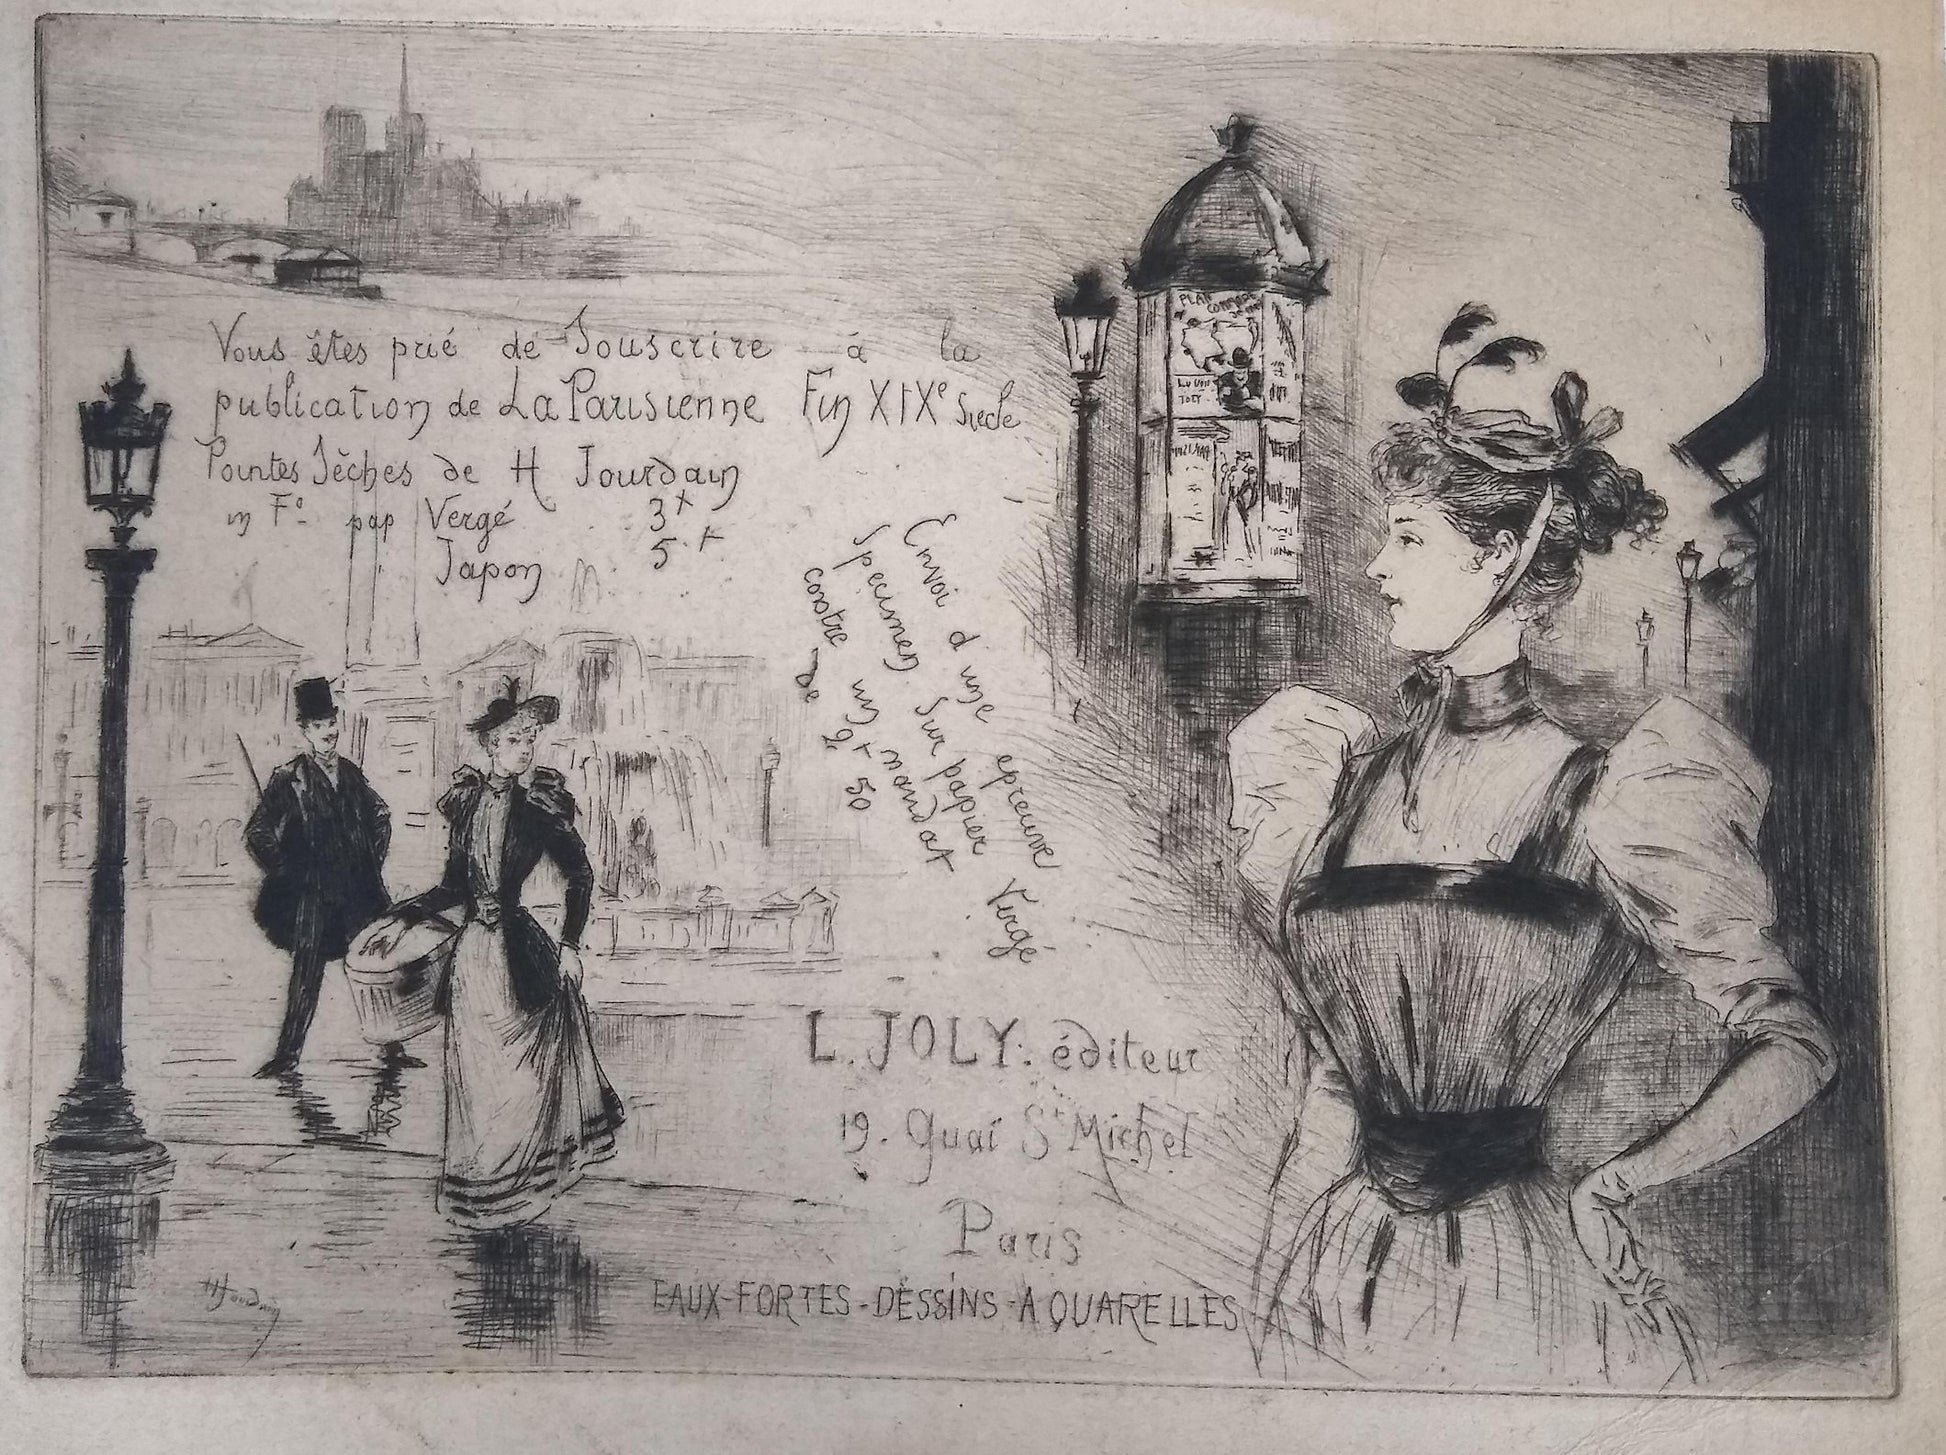 Vous êtes prié de Souscrire à la
publication de La Parisienne Fin XIXe Siecle
Pointes Sèches de H Jourdain
in Fo pap Vergé 3 +
Japon 5 +
Envoi d une epreuve
Specimen Sur papier Vergé
contre un mandat
de 2 + 50
PLAN
L. JOLY. éditeur
19. Quai St Michel
Paris
EAUX-FORTES-DESSINS-AQUARELLES
HJourdain